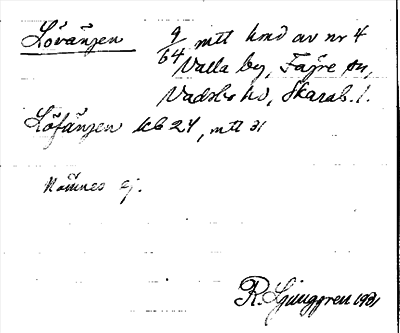 Lövänjen 9/64 mtl kmd av nr 4
Valla by, Fägre sn,
Vadsbo hd, Skarab. l.
Löfänjen kb 24, mtl 31
Nämnes ej.
R. Ljunggren 1931